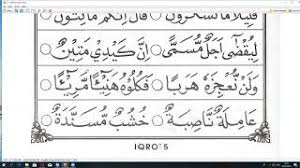 قَلِيْلًا مَّا تَشْكُرُوْنَ ○ قَالَ إِنَّكُمْ مَّاكِثُوْنَ
لِيُقْضٰى أَجَلٌ مُّسَمًّى ○ إِنَّ كَيْدِيْ مَتِيْنٌ
وَلَنْ نُّعْجِزَهٗ هَرَبًا ○ فَكُلُوْهُ هَنِيْئًا مَّرِيْئًا
عَامِلَةٌ نَّاصِبَةٌ ○ خُشُبٌ مُّسَنَّدَةٌ
IQRO`5